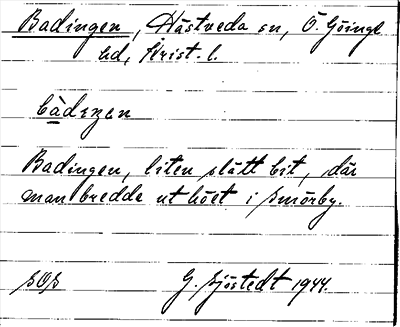 Badingen, Hästveda sn, Ö. Göinge
hd, Krist. l.
bàdɩŋen
Badingen, liten slätt bit, där
man bredde ut höet i Smörby.
SOS G. Sjöstedt 1944.